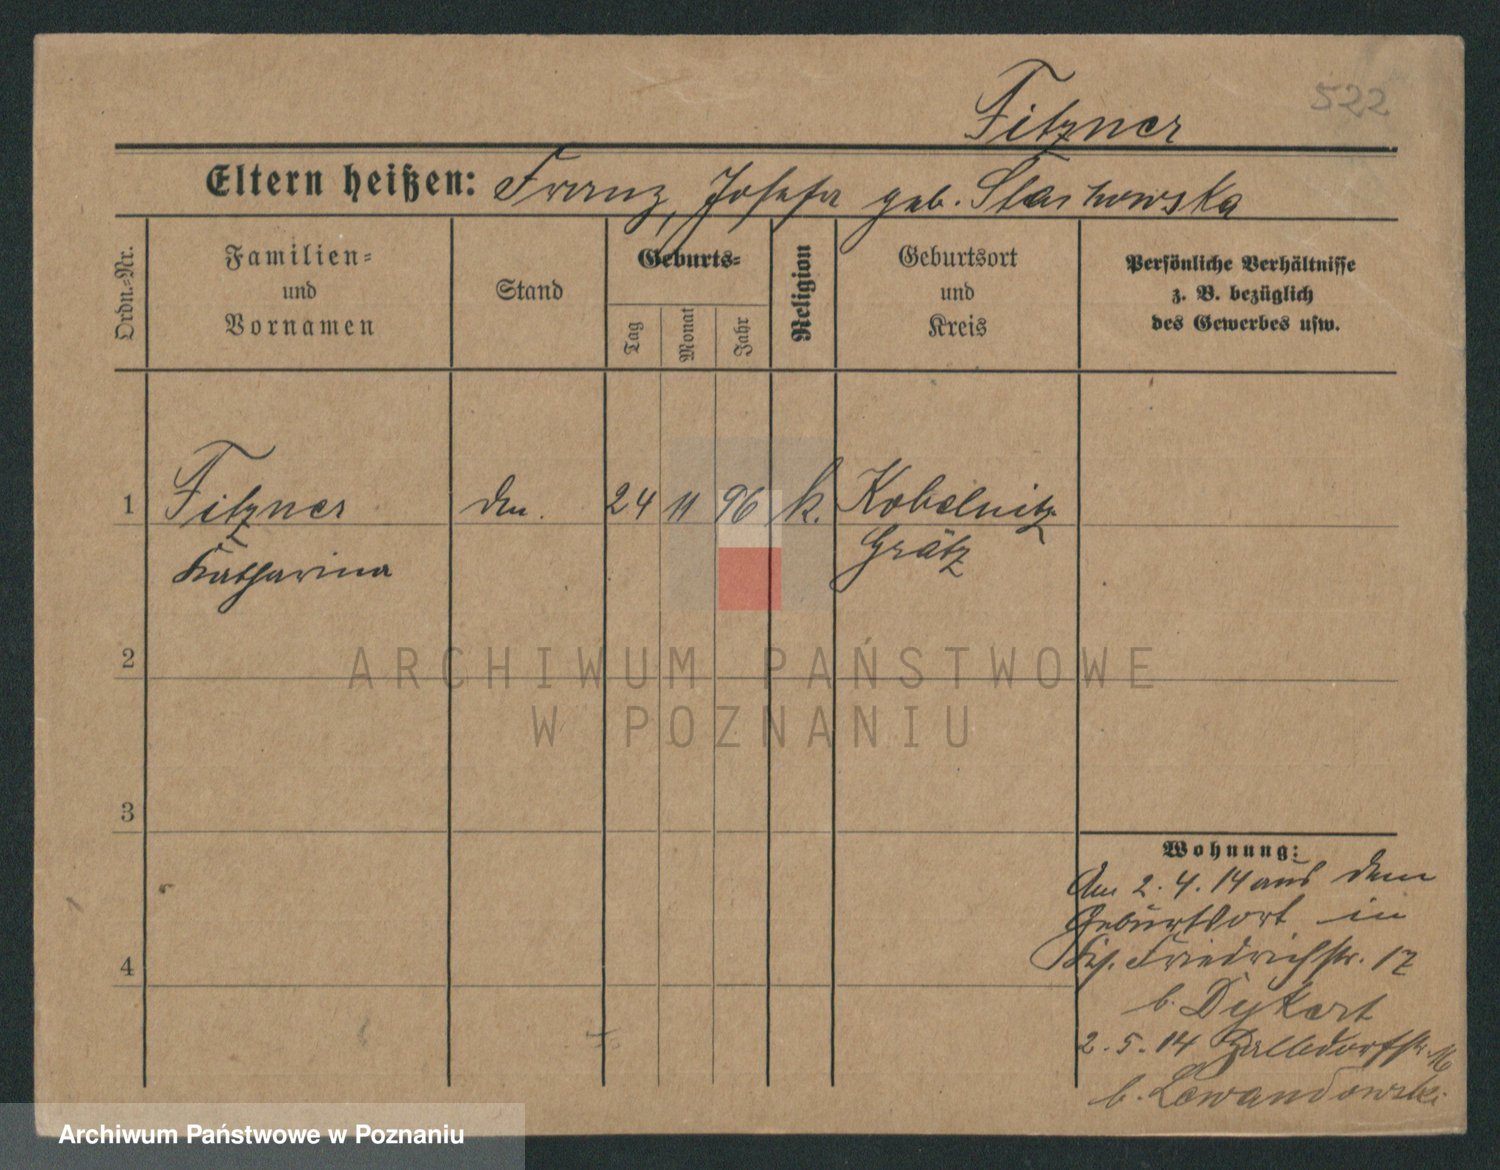 522
Fitzner
Eltern heißen: Franz, Josefa geb. Stachowska
Ordn.-Nr.
Familien-
und
Vornamen
Stand
Geburts-
Tag
Monat
Jahr
Religion
Geburtsort
und
Kreis
Persönliche Verhältnisse
z. B. bezüglich
des Gewerbes usw.
1 Fitzner 24 11 96 k. Kobelnitz
Katharina Grätz
2
ARCHIWUM PAŃSTWOWE
W POZNANIU
3
Wohnung:
Am 2.4.14 aus dem
Geburtsort in
Friedrichstr. 17
4
b. Dykert
2.5.14
b. Lewandowski
Archiwum Państwowe w Poznaniu